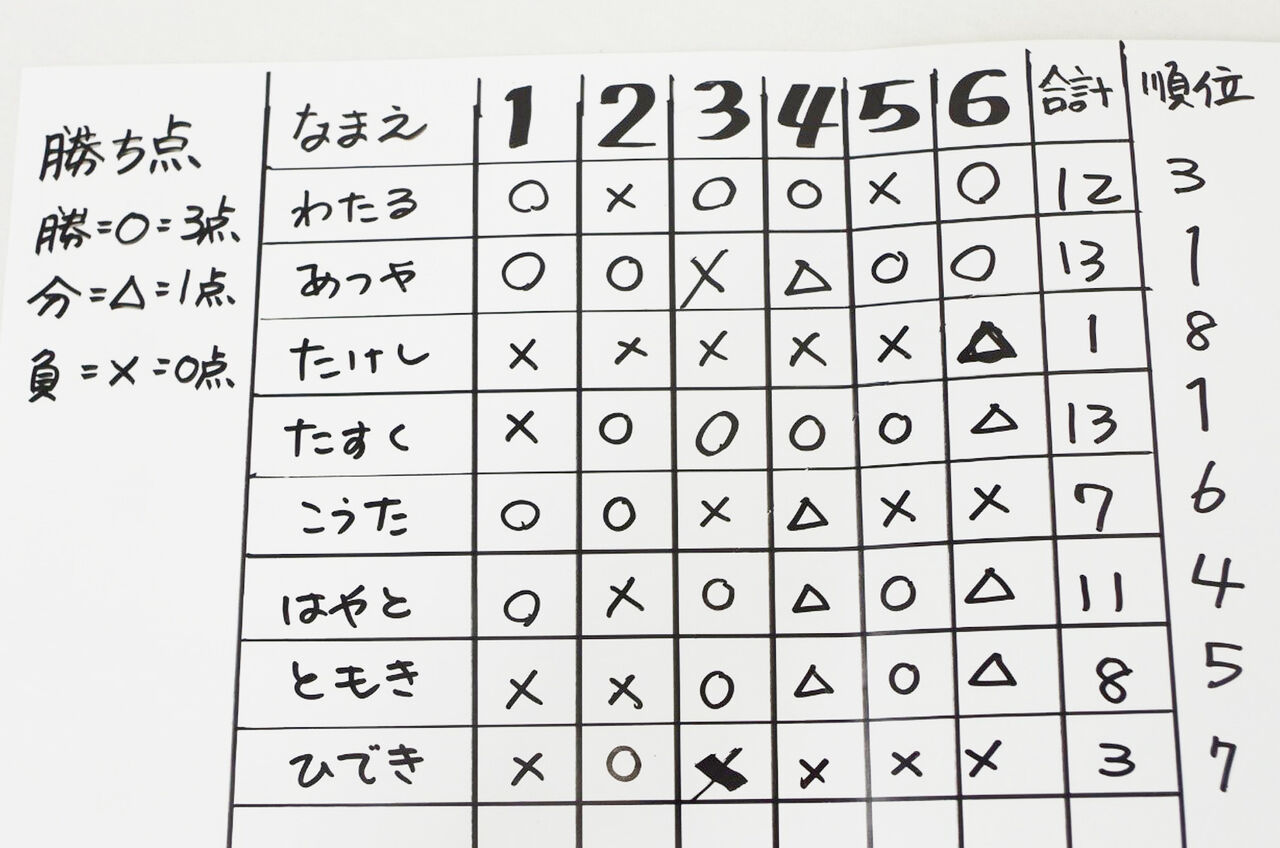 勝ち点
勝=○=3点
分=△=1点
負=×=0点
なまえ 1 2 3 4 5 6 合計 順位
わたる ○ × ○ ○ × ○ 12 3
あつや ○ ○ × △ ○ ○ 13 1
たけし × × × × × △ 1 8
たすく × ○ ○ ○ ○ △ 13 1
こうた ○ ○ × △ × × 7 6
はやと ○ × ○ △ ○ △ 11 4
ともき × × ○ △ ○ △ 8 5
ひでき × ○ × × × × 3 7